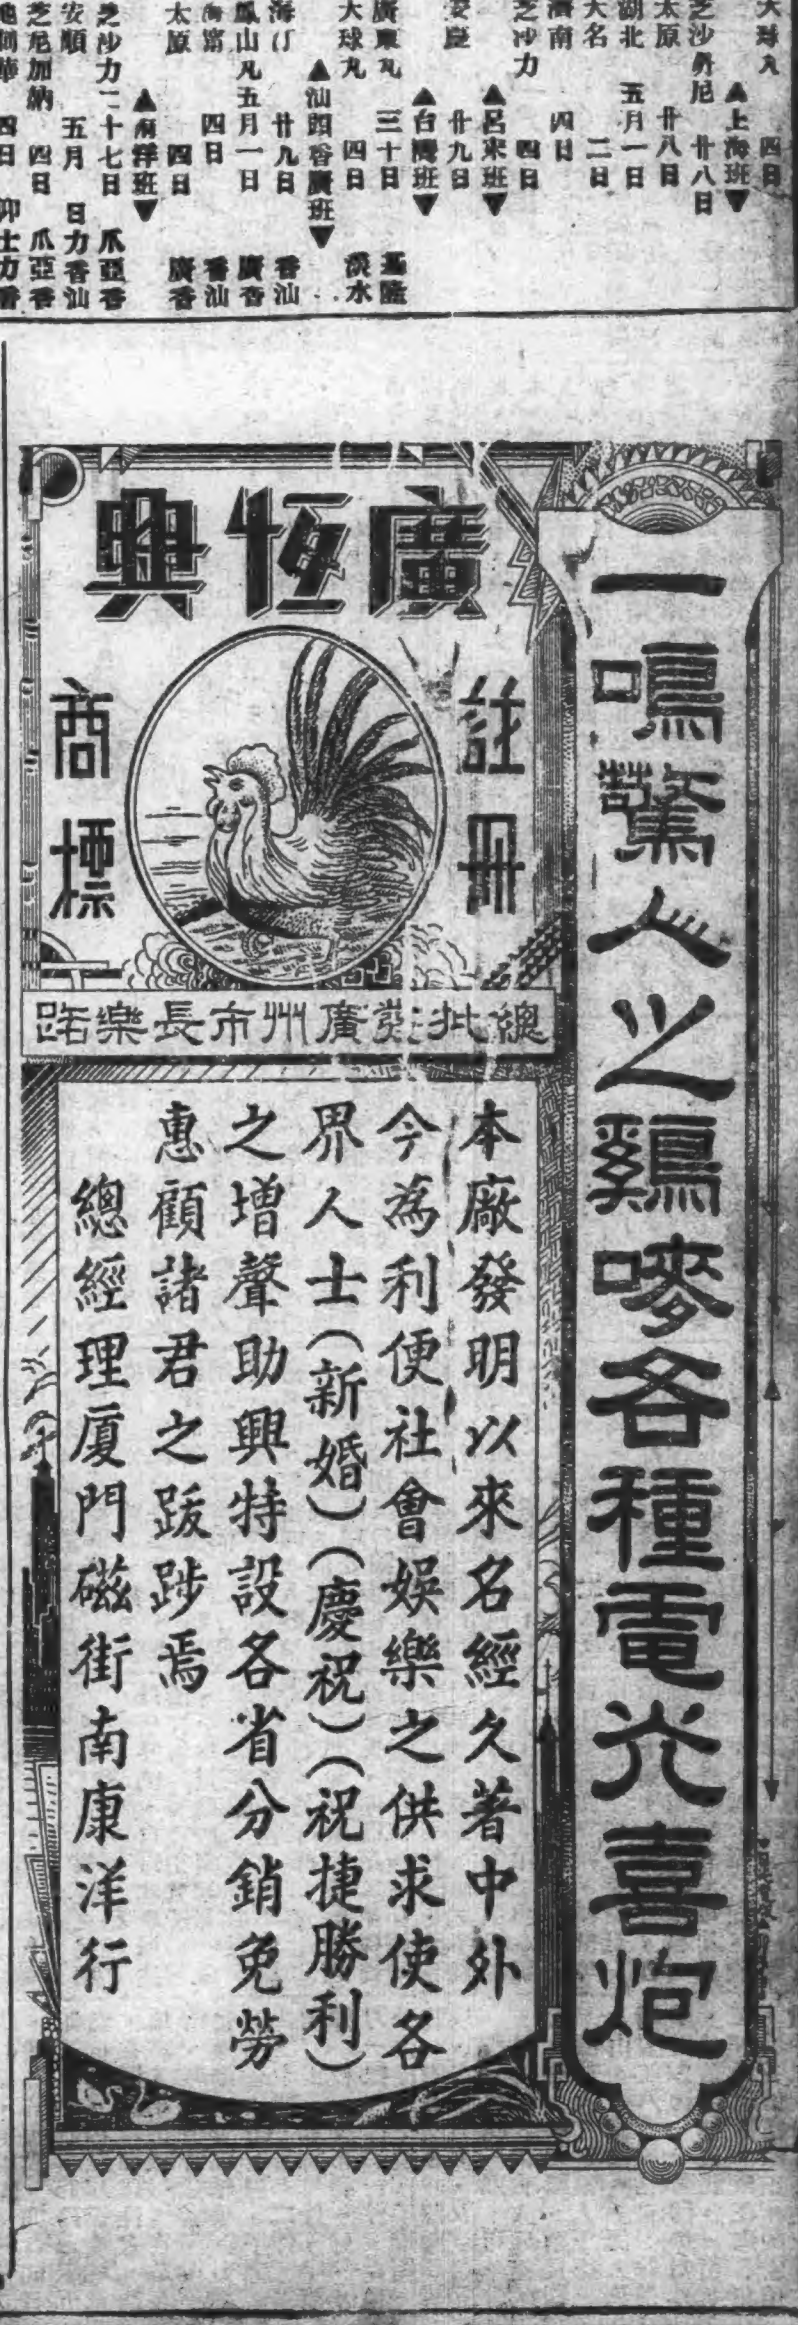 大球丸 四日
▲上海班▼
芝沙丹尼 廿八日
太原 廿八日
湖北 五月一日
大名 二日
濟南 四日
芝沙力 四日
▲呂宋班▼
安慶 廿九日
▲台灣班▼
廣東丸 三十日 基隆
大球丸 四日 淡水
▲汕頭香廣班▼
海汀 廿九日 香汕
鳳山丸 五月一日 廣香
四日 香汕
太原 四日 廣香
▲南洋班▼
芝沙力 二十七日 爪亞香
安順 五月 日 力香汕
芝尼加納 四日 爪亞香
四日 仰士力香
一鳴驚人之鷄嘜各種電光喜炮
廣恆興
註冊
商標
總批發廣州市長樂路
本廠發明以來名經久著中外
今為利便社會娛樂之供求使各
界人士(新婚)(慶祝)(祝捷勝利)
之增聲助興特設各省分銷免勞
惠顧諸君之跋踄焉
總經理廈門磁街南康洋行